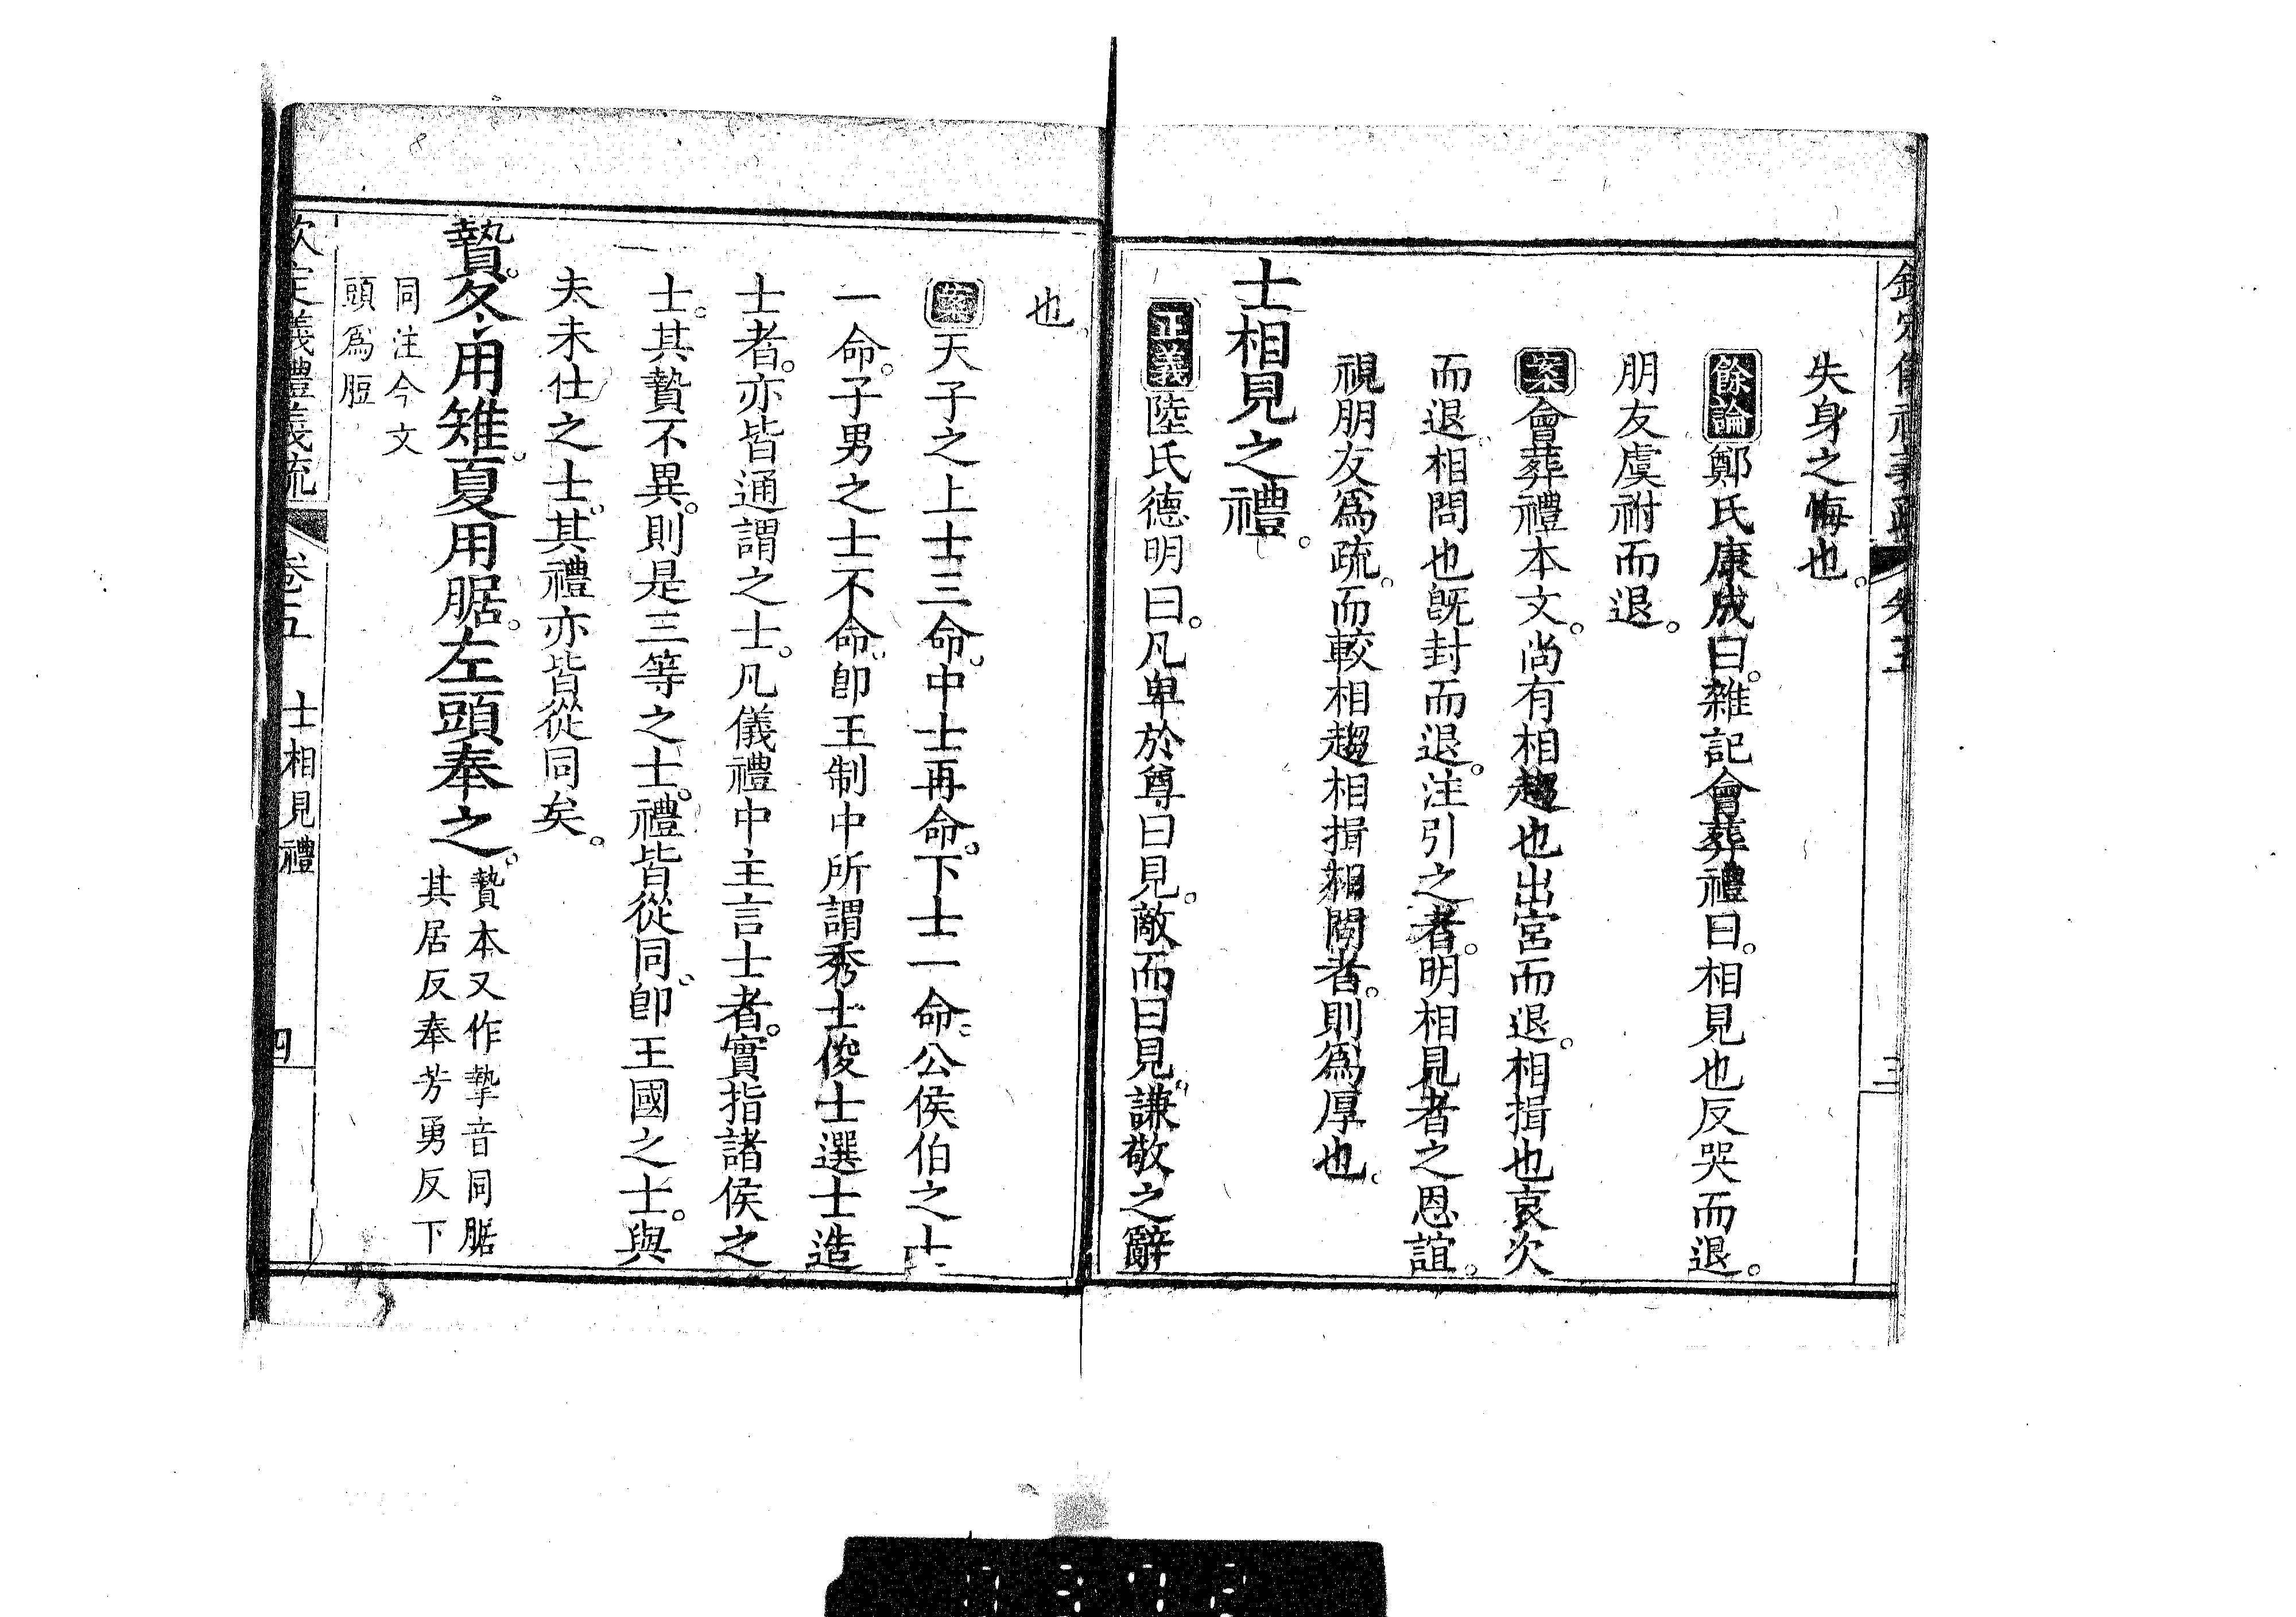 失身之悔也。
餘論鄭氏康成曰。雜記會葬禮曰。相見也反哭而退。
朋友虞祔而退。
案會葬禮本文。尚有相趨也出宮而退。相揖也哀次
而退。相問也旣封而退。注引之者。明相見者之恩誼。
視朋友爲疏。而較相趨相揖相問者。則爲厚也。
士相見之禮。
正義陸氏德明曰。凡卑於尊曰見。敵而曰見。謙敬之辭
也。
案天子之上士三命。中士再命。下士一命。公侯伯之士
一命。子男之士不命。卽王制中所謂秀士俊士選士造
士者。亦皆通謂之士。凡儀禮中主言士者。實指諸侯之
士。其贄不異。則是三等之士。禮皆從同。卽王國之士。與
夫未仕之士。其禮亦皆從同矣。
贄。冬用雉。夏用腒。左頭奉之。
贄本又作摯音同腒
其居反奉芳勇反下
同注今文
頭爲脰
欽定義禮義疏 卷五 士相見禮 四